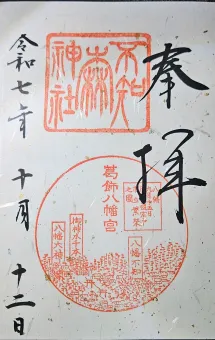 奉拝
不知
森
神社
葛飾八幡宮
八幡不知
八幡大神
令和七年十月十二日